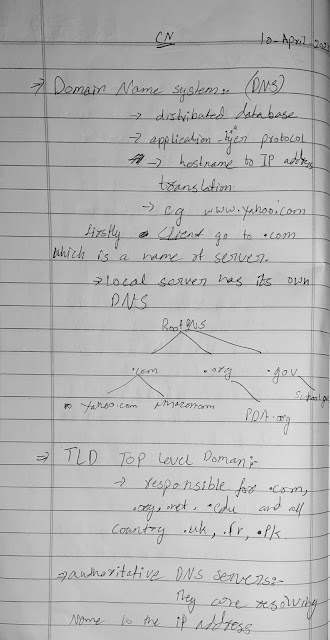 CN
10-April-202
⇒ Domain Name system:- (DNS)
→ distributed database
→ application-layer protocol
→ hostname to IP address
translation
→ eg www.yahoo.com
firstly client go to .com
which is a name of server.
→ local server has its own
DNS
Root DNS
.com .org .gov
Yahoo.com Amazon.com PDA.org
⇒ TLD Top Level Domain:-
→ responsible for .com,
.org, .net, .edu and all
country .uk, .fr, .pk.
⇒ authoritative DNS servers:-
They are resolving
Name to the IP address